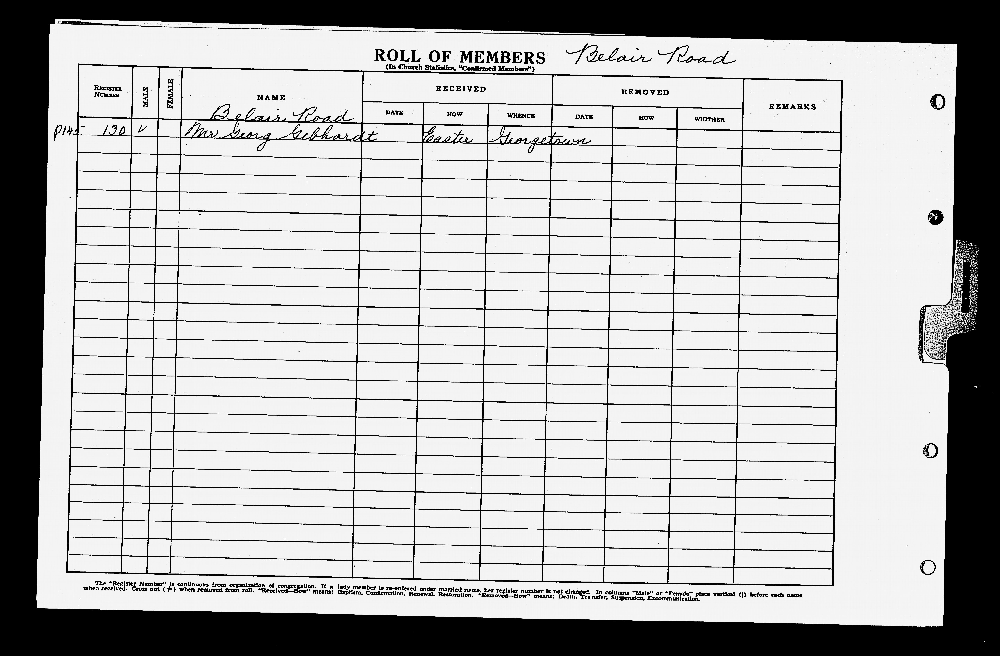 ROLL OF MEMBERS Belair Road
(In Church Statistics, "Confirmed Members")
REGISTER NUMBER MALE FEMALE NAME RECEIVED REMOVED REMARKS
DATE HOW WHENCE DATE HOW WHITHER
Belair Road
P145 130 v Mr Georg Gebhardt Easter Georgetown
The "Register Number" is continuous from organization of congregation. If a lady member is re-entered under married name, her register number is not changed. In columns "Male" or "Female" place vertical (|) before each name
when received. Cross out (+) when removed from roll. "Received—How" means: Baptism, Confirmation, Renewal, Restoration. "Removed—How" means: Death, Transfer, Suspension, Excommunication.